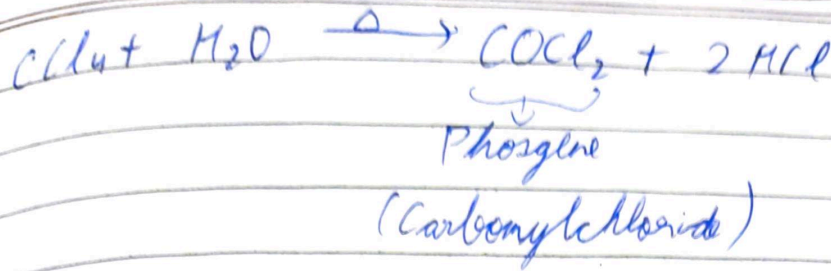 CCl₄ + H₂O —Δ→ COCl₂ + 2 HCl
Phosgene
(Carbonylchloride)